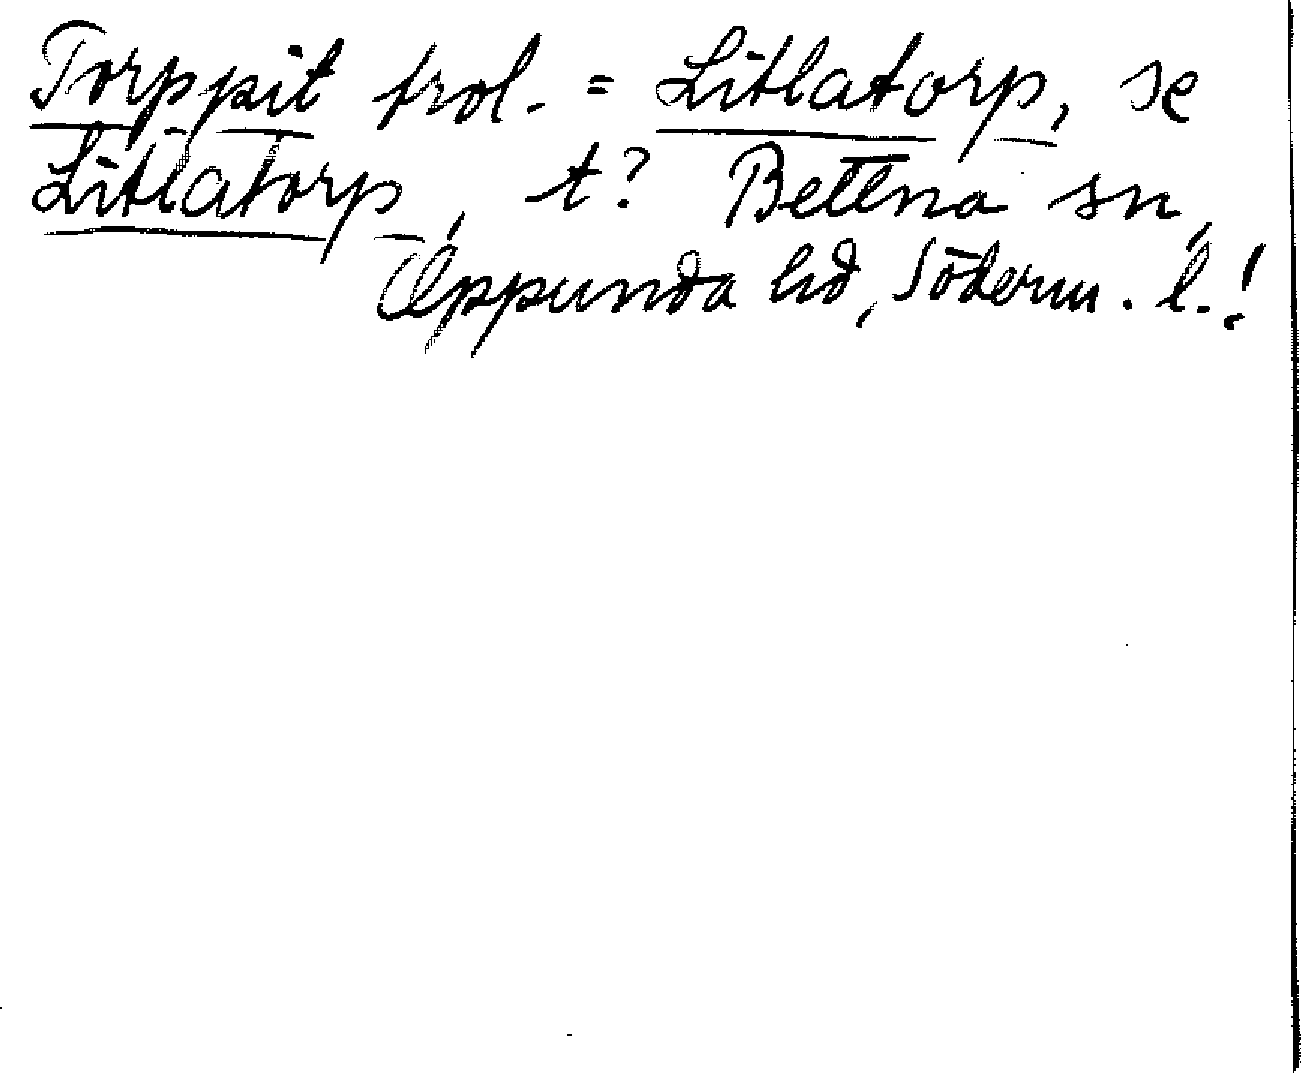 Torppit trol. = Litlatorp, se
Litlatorp, t? Bettna sn,
Oppunda hd, Söderm. l.!